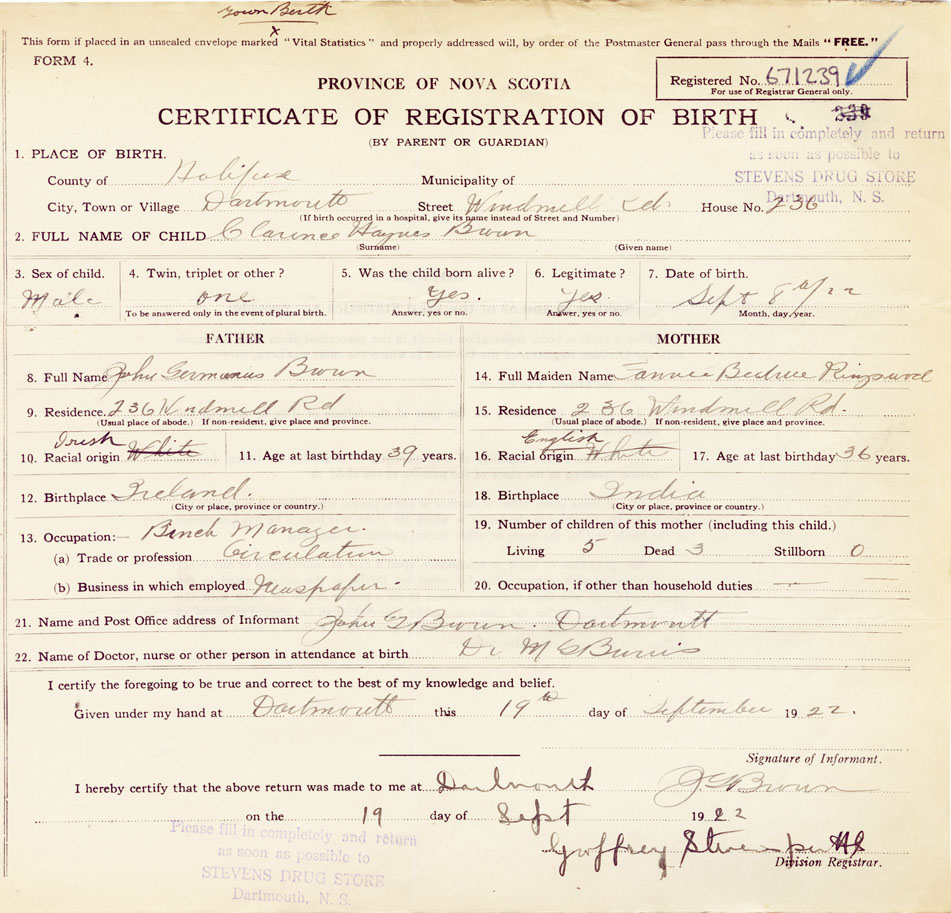 Town Birth
x
This form if placed in an unsealed envelope marked "Vital Statistics" and properly addressed will, by order of the Postmaster General pass through the Mails "FREE."
FORM 4.
Registered No. 671239
For use of Registrar General only.
PROVINCE OF NOVA SCOTIA
CERTIFICATE OF REGISTRATION OF BIRTH
339
(BY PARENT OR GUARDIAN)
Please fill in completely and return
as soon as possible to
STEVENS DRUG STORE
Dartmouth, N. S.
1. PLACE OF BIRTH.
County of Halifax Municipality of
City, Town or Village Dartmouth Street Windmill Rd. House No. 236
(If birth occurred in a hospital, give its name instead of Street and Number)
2. FULL NAME OF CHILD Clarence Haynes Brown
(Surname) (Given name)
3. Sex of child. 4. Twin, triplet or other? 5. Was the child born alive? 6. Legitimate? 7. Date of birth.
Male one Yes. Yes. Sept 8th/22
To be answered only in the event of plural birth. Answer, yes or no. Answer, yes or no. Month, day, year.
FATHER MOTHER
8. Full Name John Germanus Brown 14. Full Maiden Name Beatrice Ringwood
9. Residence. 236 Windmill Rd 15. Residence 236 Windmill Rd.
(Usual place of abode.) If non-resident, give place and province. (Usual place of abode.) If non-resident, give place and province.
Irish English
10. Racial origin White 11. Age at last birthday 39 years. 16. Racial origin White 17. Age at last birthday 36 years.
12. Birthplace Ireland. 18. Birthplace India
(City or place, province or country.) (City or place, province or country.)
13. Occupation:— Branch Manager. 19. Number of children of this mother (including this child.)
(a) Trade or profession Circulation Living 5 Dead 3 Stillborn 0
(b) Business in which employed Newspaper. 20. Occupation, if other than household duties —
21. Name and Post Office address of Informant John G Brown. Dartmouth
22. Name of Doctor, nurse or other person in attendance at birth Dr M G Burris
I certify the foregoing to be true and correct to the best of my knowledge and belief.
Given under my hand at Dartmouth this 19th day of September 1922.
Signature of Informant.
I hereby certify that the above return was made to me at Dartmouth J G Brown
on the 19 day of Sept 1922
Please fill in completely and return
as soon as possible to
STEVENS DRUG STORE
Dartmouth, N. S.
Geoffrey Stevens per
Division Registrar.